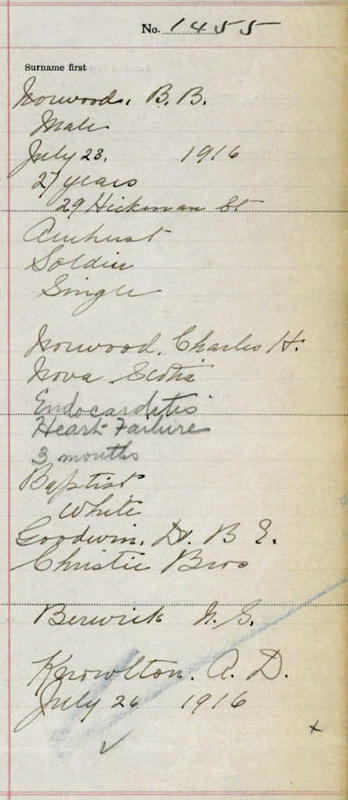 No. 1455
Surname first
Norwood, B. B.
Male
July 23. 1916
27 years
29 Hickman St
Amherst
Soldier
Single
Norwood, Charles H.
Nova Scotia
Endocarditis
Heart Failure
3 months
Baptist
White
Goodwin, Dr. B E.
Christie Bros
Berwick N. S.
Knowlton. A. D.
July 26 1916